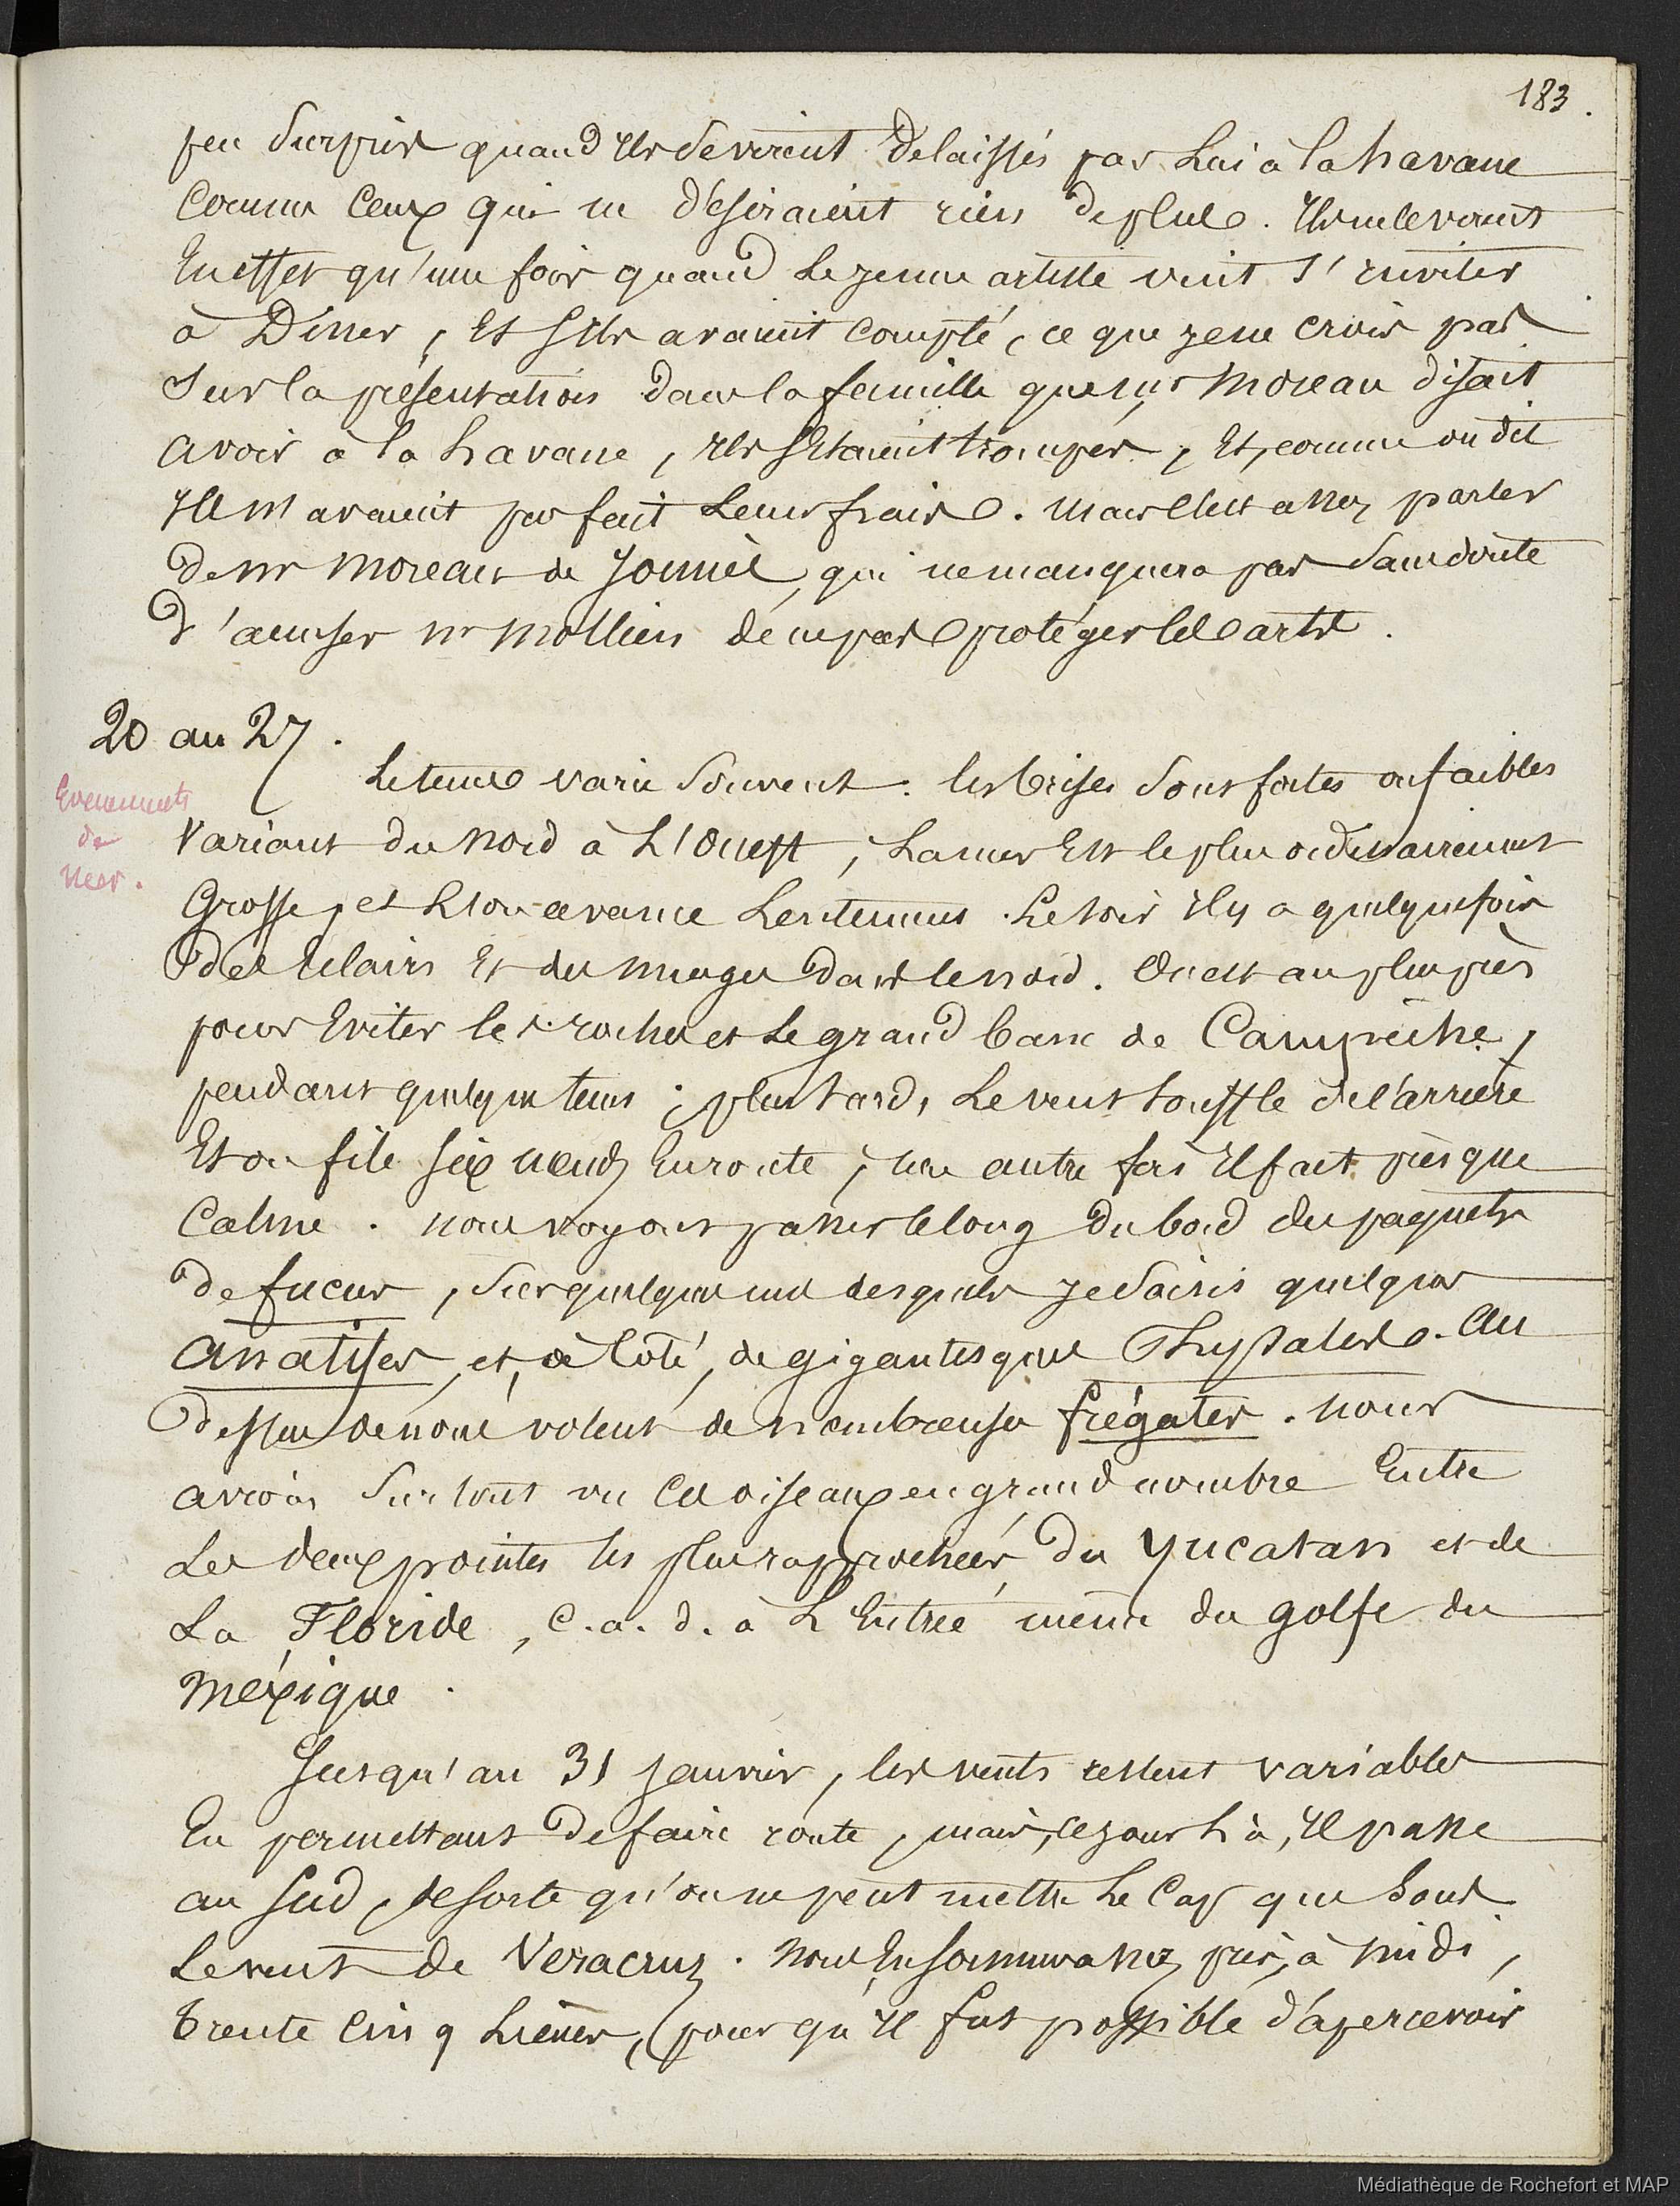 183.
peu Surpris quand Ils Se virent Delaissés par Lui à la havane
Comme Ceux qui ne Désiraient rien De plus. Ils ne le virent
En effet qu'une fois quand Le jeune artiste vint S'inviter
à Diner, Et S'ils avaient Compté, ce que je ne crois pas
Sur la présentation Dans la famille que Mr Moreau disait
avoir à la havane, Ils S'Etaient trompés, Et, comme on dit
Ils n'avaient pas fait Leurs frais. Mais C'est assez parler
De Mr Moreau de Jonnès, qui ne manquera pas Sans doute
D'accuser Mr Mollien de ne pas protéger les arts.
20 au 27.
Le tems varie Souvent. les brises Sont fortes ou faibles
Evenements
de
Mer.
Variant du Nord à L'Ouest, La mer Est le plus ordinairement
Grosse, et L'on avance Lentement. Le soir Il y a quelquefois
Des Eclairs Et des nuages Dans le nord. On est au plus près
pour Eviter les roches et Le grand banc de Campêche,
pendant quelque tems; plus tard, Le vent Souffle de l'arrière
Et on file Six nœuds En route, une autre fois Il fait presque
Calme. nous voyons passer le long Du bord des paquets
De fucus, Sur quelques uns desquels je Saisis quelques
Anatifes, et, à Coté, de gigantesques Physales. Au
Dessus de nous volent de nombreuses frégates. nous
avons Surtout vu Ces oiseaux en grand nombre Entre
Les deux pointes les plus rapprochées Du Yucatan et de
La Floride, c.a.d. à L'Entrée même du golfe du
Méxique.
Jusqu'au 31 janvier, les vents restent variables
En permettant De faire route, mais, ce jour là, Il passe
au Sud, de Sorte qu'on ne peut mettre Le Cap que Sous
Le vent de Veracruz. Nous En Sommes assez près, à midi,
trente Cinq Lieues, (pour qu'Il fut possible d'apercevoir
Médiathèque de Rochefort et MAP